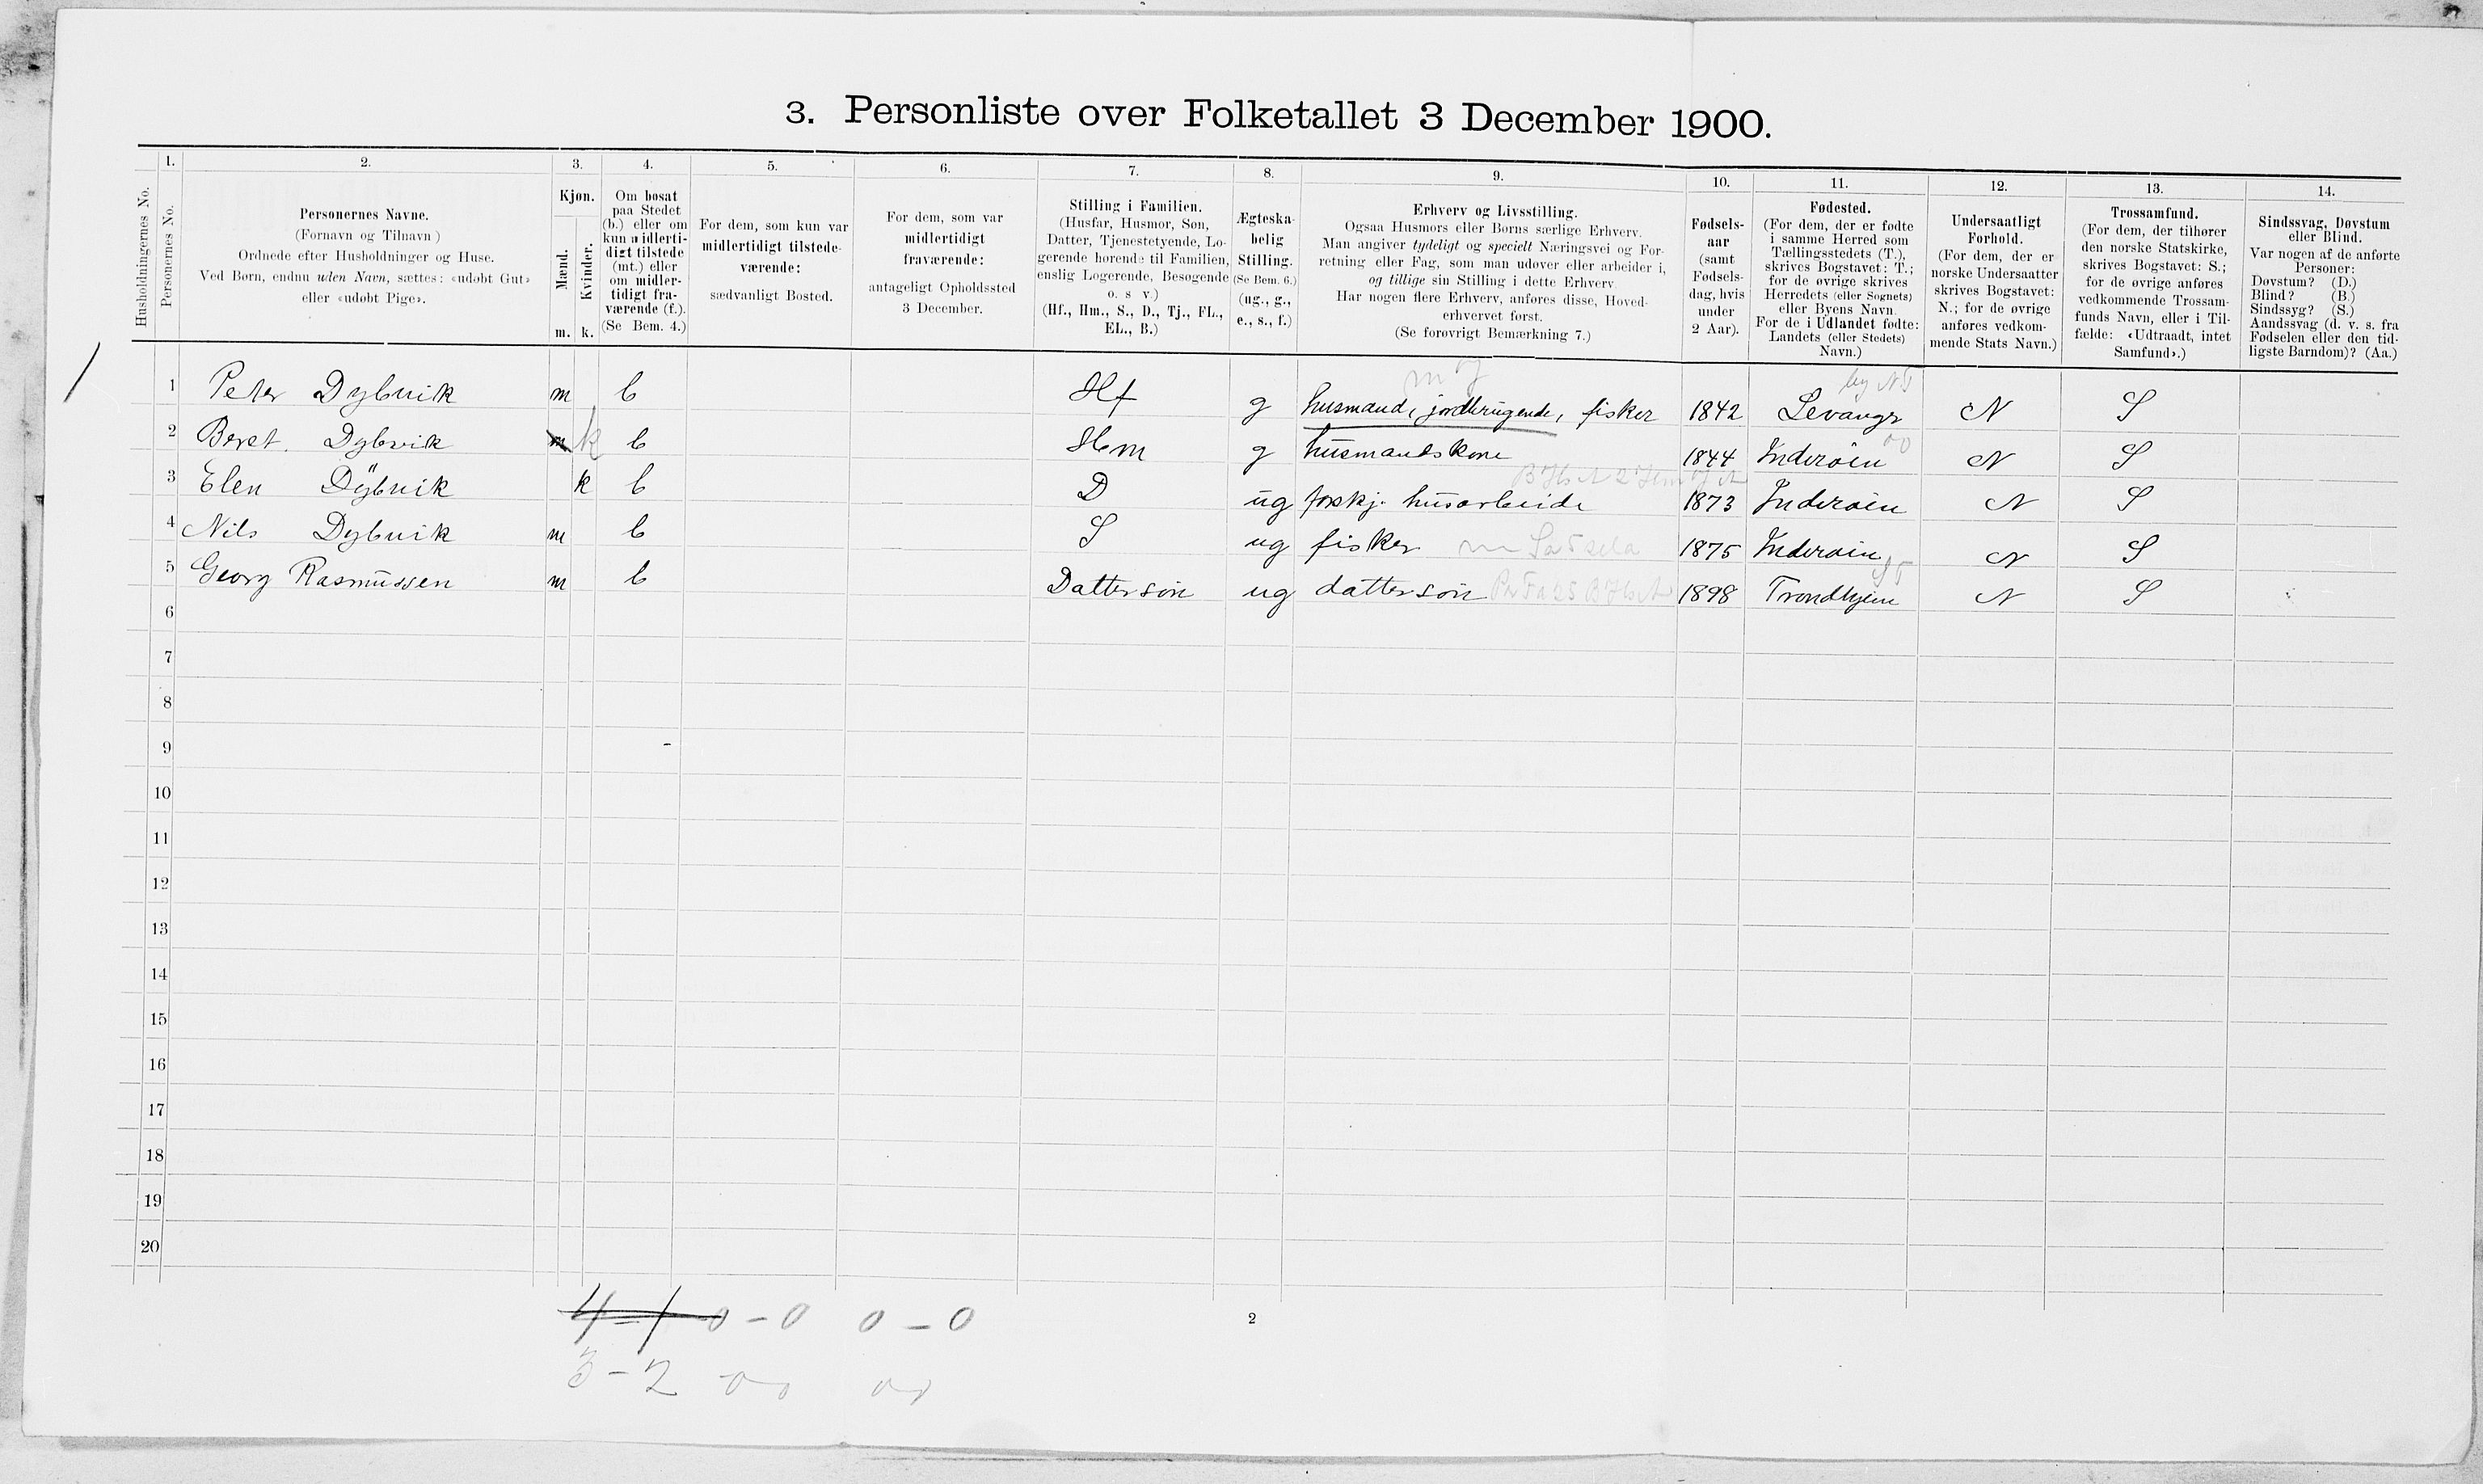 3. Personliste over Folketallet 3 December 1900.
1. 2. 3. 4. 5. 6. 7. 8. 9. 10. 11. 12. 13. 14.
Husholdningernes No.
Personernes No.
Personernes Navne.
(Fornavn og Tilnavn)
Ordnede efter Husholdninger og Huse.
Ved Børn, endnu uden Navn, sættes: «udøbt Gut»
eller «udøbt Pige».
Kjøn.
Mænd.
Kvinder.
m. k.
Om bosat
paa Stedet
(b.) eller om
kun midlerti-
digt tilstede
(mt.) eller
om midler-
tidigt fra-
værende (f.).
(Se Bem. 4.)
For dem, som kun var
midlertidigt tilstede-
værende:
sædvanligt Bosted.
For dem, som var
midlertidigt
fraværende:
antageligt Opholdssted
3 December.
Stilling i Familien.
(Husfar, Husmor, Søn,
Datter, Tjenestetyende, Lo-
gerende hørende til Familien,
enslig Logerende, Besøgende
o. s v.)
(Hf., Hm., S., D., Tj., FL.,
EL., B.)
Ægteska-
belig
Stilling.
(Se Bem. 6.)
(ug., g.,
e., s., f.)
Erhverv og Livsstilling.
Ogsaa Husmors eller Børns særlige Erhverv.
Man angiver tydeligt og specielt Næringsvei og For-
retning eller Fag, som man udøver eller arbeider i,
og tillige sin Stilling i dette Erhverv
Har nogen flere Erhverv, anføres disse, Hoved-
erhvervet først.
(Se forøvrigt Bemærkning 7.)
Fødsels-
aar
(samt
Fødsels-
dag, hvis
under
2 Aar).
Fødested.
(For dem, der er fødte
i samme Herred som
Tællingsstedets (T.),
skrives Bogstavet: T.;
for de øvrige skrives
Herredets (eller Sognets)
eller Byens Navn.
For de i Udlandet fødte:
Landets (eller Stedets)
Navn.)
Undersaatligt
Forhold.
(For dem, der er
norske Undersaatter
skrives Bogstavet:
N.; for de øvrige
anføres vedkom-
mende Stats Navn.)
Trossamfund.
(For dem, der tilhører
den norske Statskirke,
skrives Bogstavet: S.;
for de øvrige anføres
vedkommende Trossam-
funds Navn, eller i Til-
fælde: «Udtraadt, intet
Samfund».)
Sindssvag, Døvstum
eller Blind.
Var nogen af de anførte
Personer:
Døvstum? (D.)
Blind? (B.)
Sindssyg? (S.)
Aandssvag (d. v. s. fra
Fødselen eller den tid-
ligste Barndom)? (Aa.)
m og by NT
1 Peter Dybvik m b Hf g husmand, jordbrugende, fisker 1842 Levanger N S
2 Beret. Dybvik m k b Hm g husmandskone 1844 Inderøen N S
3 Elen Dybvik k b D ug forskj. husarbeide 1873 Inderøen N S
4 Nils Dybvik m b S ug fisker 1875 Inderøen N S
ST
5 Georg Rasmussen m b Dattersøn ug dattersøn 1898 Trondhjem N S
6
7
8
9
10
11
12
13
14
15
16
17
18
19
20
4 - 1 0 - 0 0 - 0
2
3 - 2